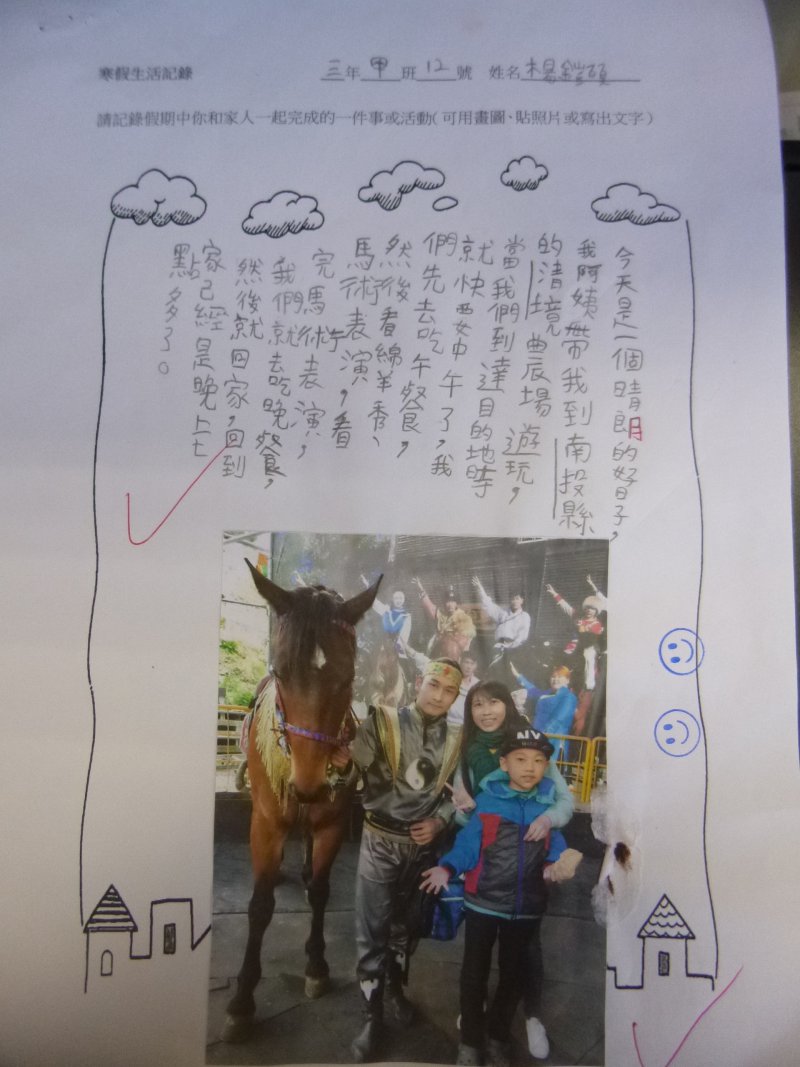 寒假生活記錄
三年甲班12號 姓名楊鎧碩
請記錄假期中你和家人一起完成的一件事或活動(可用畫圖、貼照片或寫出文字)
今天是一個晴朗的好日子，
我阿姨帶我到南投縣
的清境農場遊玩，
當我們到達目的地時
就快要中午了，我
們先去吃午餐，
然後看綿羊秀、
馬術表演，看
完馬術表演，
我們就去吃晚餐，
然後就回家，回到
家已經是晚上七
點多了。
NY